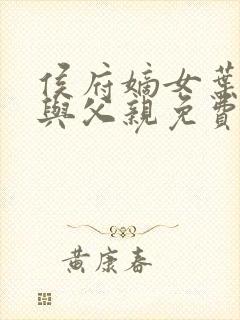 侯府嫡女葉
與父親免費
黃康春